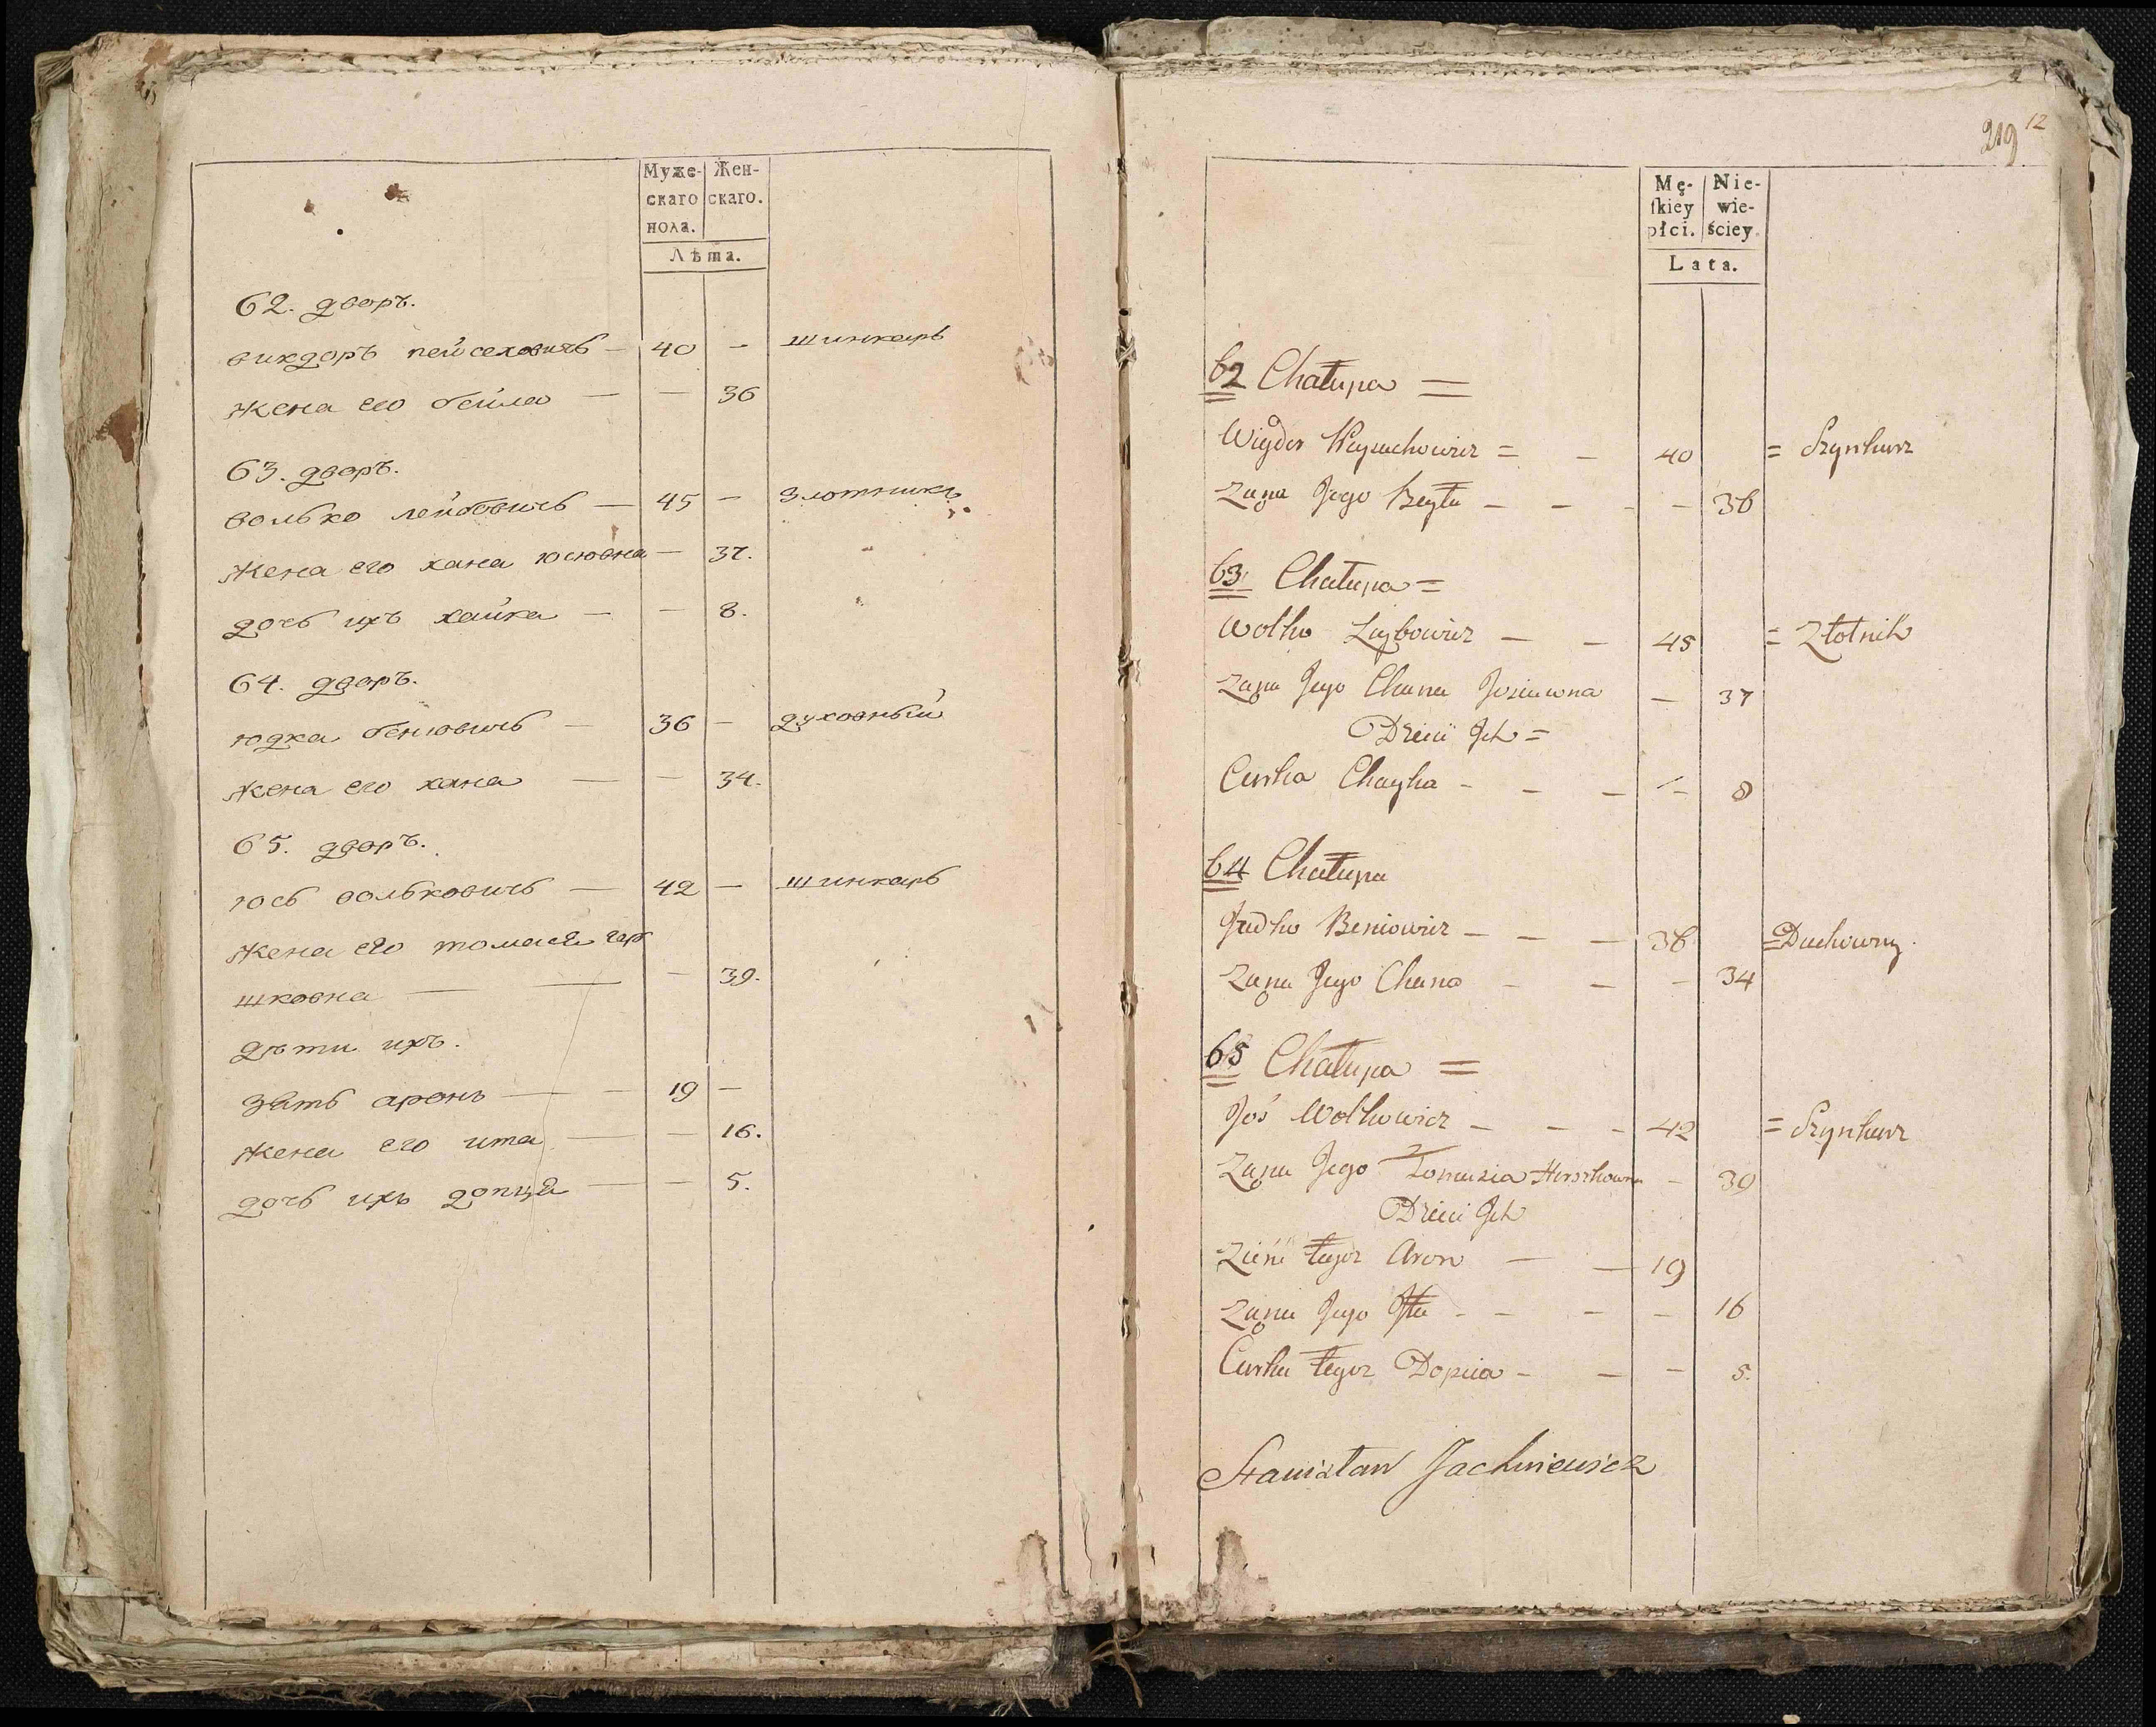 Муже-
скаго
пола.
Жен-
скаго.
Лѣта.
62. дворъ.
викдоръ пейсеховичь — 40 — шинкарь
жена его бейла — — 36
63. дворъ.
волько лейбовичь — 45 — злотникъ
жена его хана юсювна — 37.
дочь ихъ хайка — — 8.
64. дворъ.
юдка бенювичь — 36 — духовный
жена его хана — — 34.
65. дворъ.
юсь вольковичь — 42 — шинкарь
жена его томася гер
шковна — — — 39.
дѣти ихъ.
зять аронъ — — 19 —
жена его ита — — 16.
дочь ихъ допца — — 5.
219 12
Mę-
ſkiey
płci.
Nie-
wie-
ściey.
Lata.
62 Chałupa =
Wigdor Peysachowicz = — 40 = Szynkarz
Zona Jego Beyła — — - — 36
63 Chałupa =
Wolko Leybowicz — — 45 = Złotnik
Zona Jego Chana Josiowna — 37
Dzieci Ich =
Curka Chayka - — — — 8
64 Chałupa
Judko Beniowicz — — — 36 = Duchowny.
Zona Jego Chana - — - 34
65 Chałupa =
Joś Wolkowicz — — - 42 = Szynkarz
Zona Jego Tomasia Herszkowna - 39
Dzieci Ich
Zieńć tegoż Aron — — 19
Zona Jego Itta - - — — 16
Curka tegoż Dopcia - — — 5.
Stanisław Jachniewicz